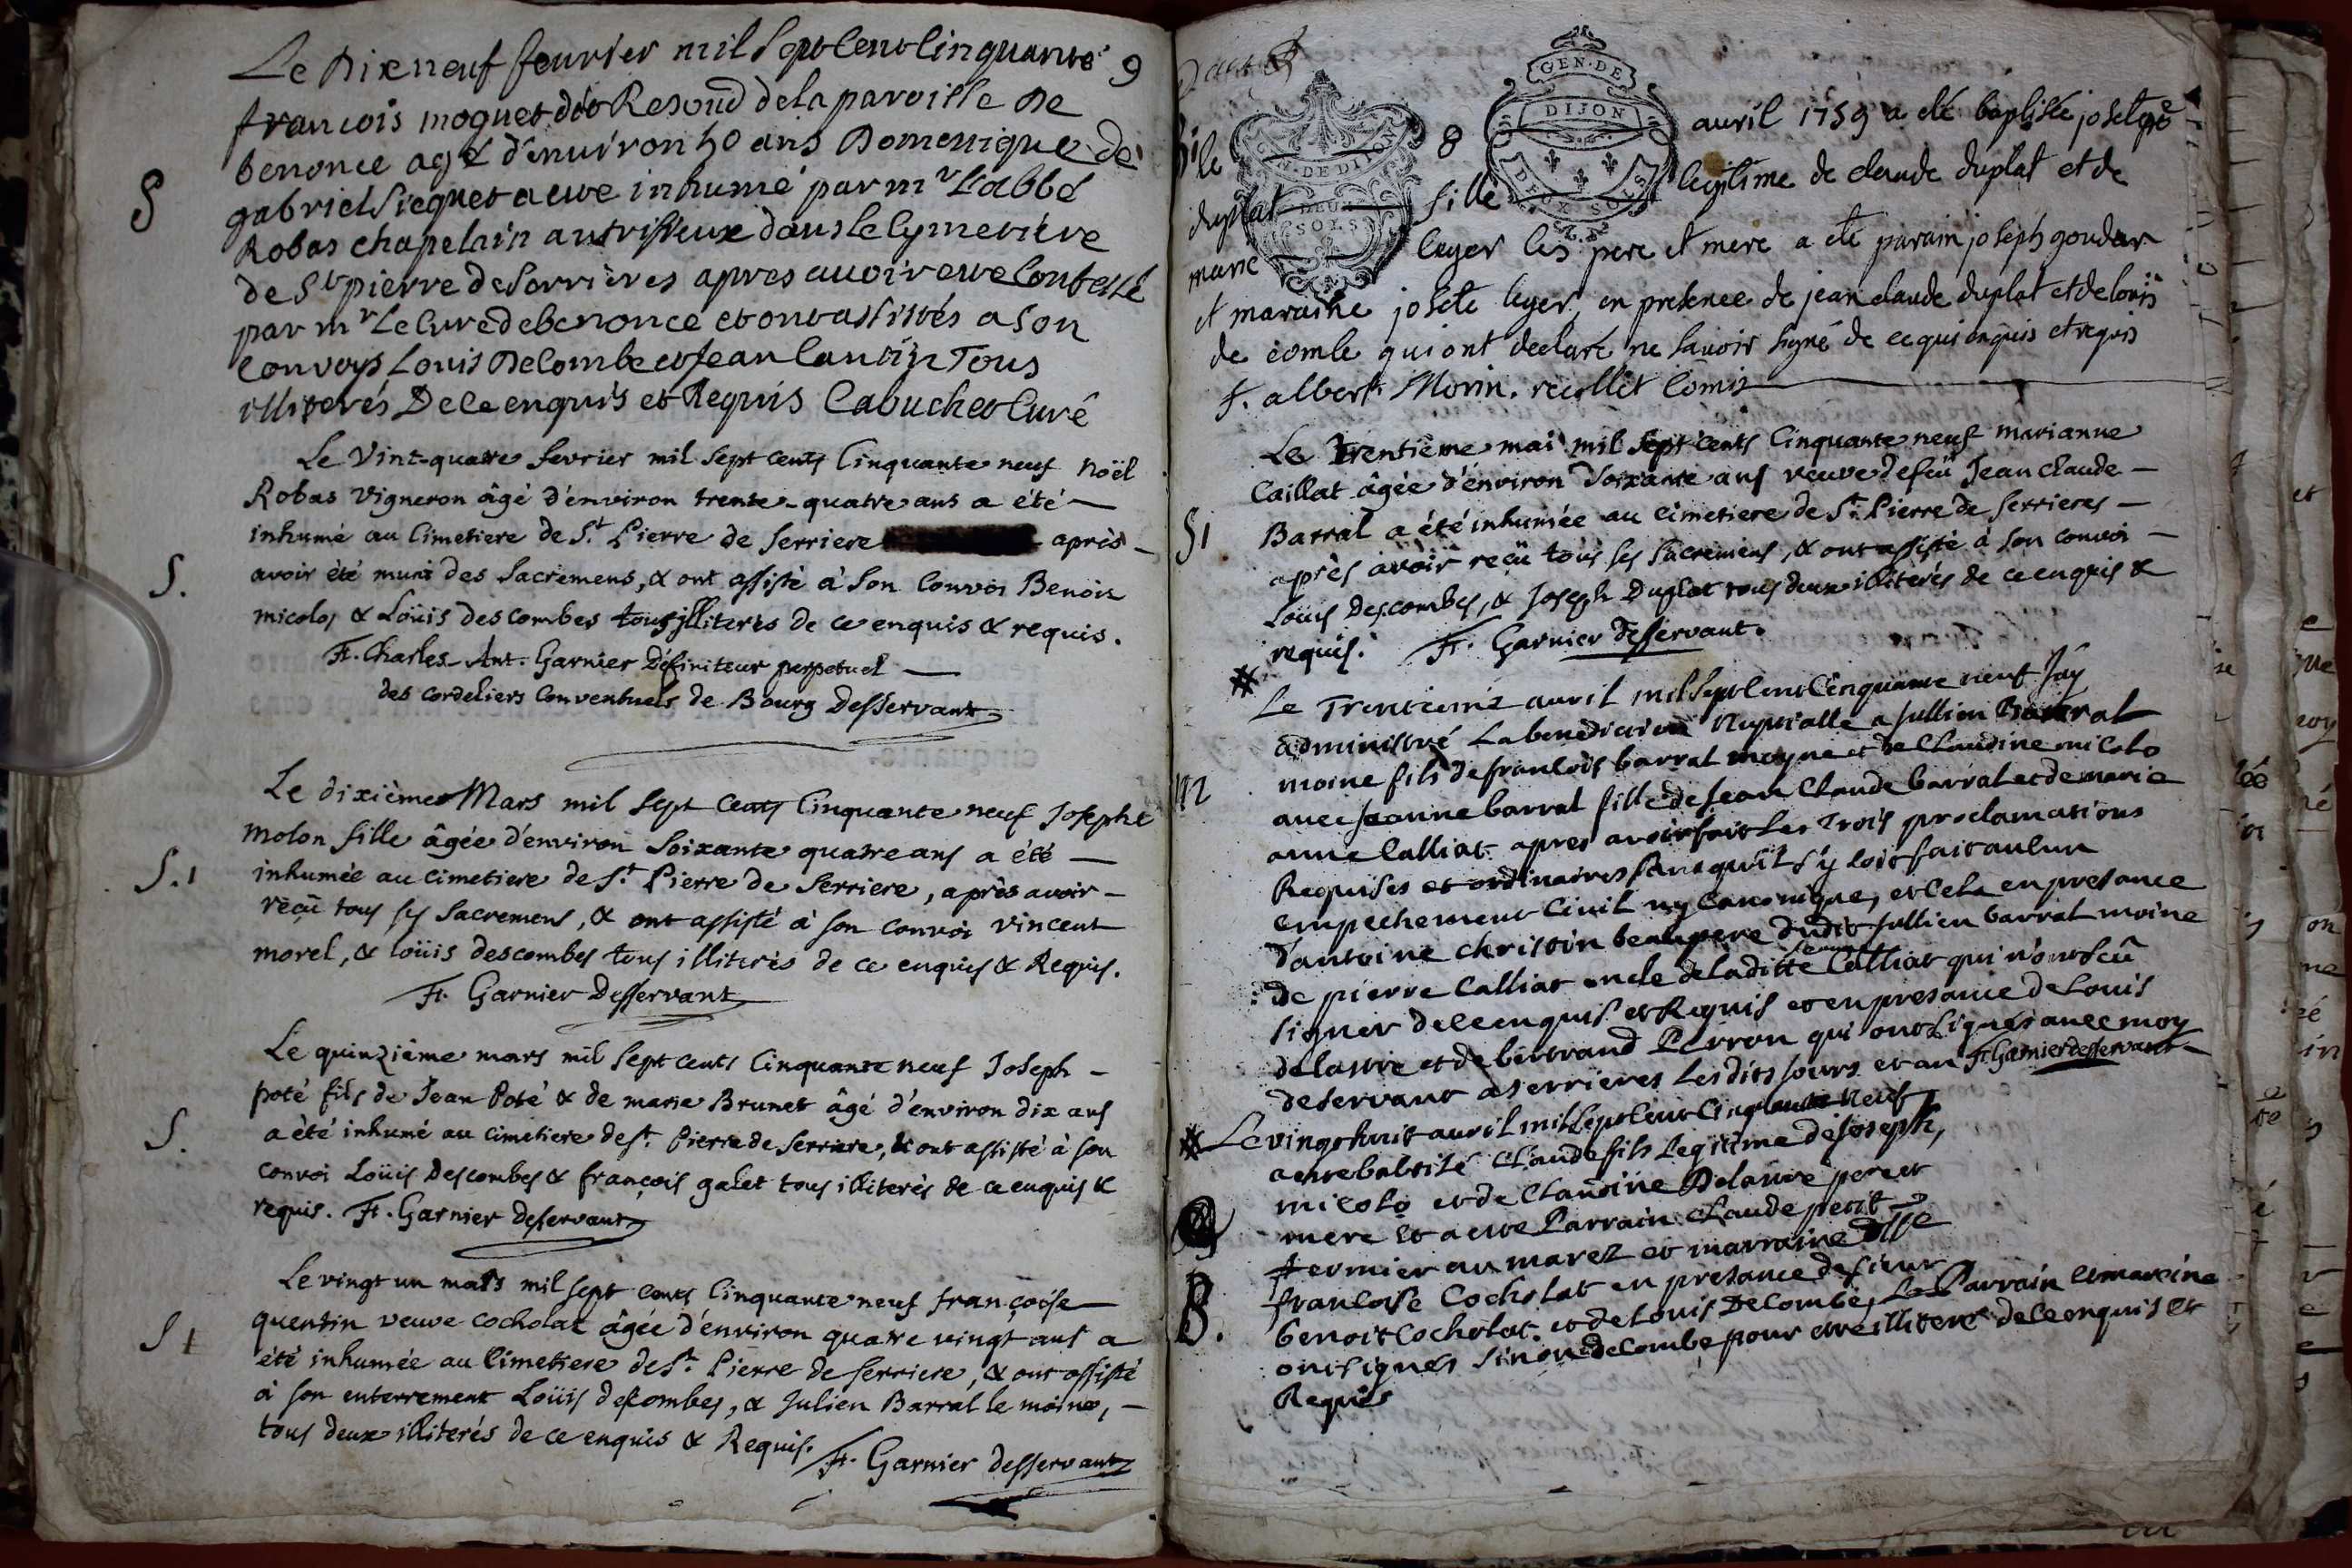 Le Dixneuf fevrier mil Sept Cent Cinquante 9
francois moquet dit Resoud de la paroisse De
benonce agé d'environ 50 ans Domestique de
S
gabriel Sicquet a etté inhumé par mr L'abbé
Robas chapelain dans le Cymetiere
de St pierre de Serrieres apres avoir etté Confessé
par mr Le Curé de benonce et ont assistés a son
Convoys Louis Decombe et Jean Tous
illiterés De Ce enquis et Requis Cabuchet Curé
Le Vint-quatre fevrier mil Sept cents Cinquante neuf noël
Robas Vigneron âgé d'environ trente-quatre ans a été
inhumé au Cimetiere de St. Pierre de Serriere après
S.
avoir été muni des Sacremens, & ont assisté à Son Convoi Benoit
micolos & Loüis descombes tous illiterés de ce enquis & requis.
Fr. Charles-Ant. Garnier Définiteur perpetuel
des cordeliers Conventuels de Bourg Desservant
Le dixième Mars mil Sept Cents Cinquante neuf Josephe
molon fille âgée d'environ Soixante quatre ans a été
S.1
inhumée au Cimetiere de St. Pierre de Serriere, après avoir
reçû tous ses Sacremens, & ont assisté à son convoi vincent
morel, & loüis descombes tous illiterés de ce enquis & Requis.
Fr. Garnier Desservant
Le quinzième mars mil Sept Cents Cinquante neuf Joseph
poté fils de Jean Poté & de marie Brunet âgé d'environ dix ans
S.
a été inhumé au Cimetiere de St. Pierre de Serriere, & ont assisté à son
convoi Loüis Descombes & françois galet tous illiterés de ce enquis &
requis. Fr. Garnier Desservant
Le vingt un mars mil sept cents Cinquante neuf françoise
quentin veuve cocholat âgée d'environ quatre vingt ans a
S 1
été inhumée au Cimetiere de St. Pierre de Serriere, & ont assisté
à son enterrement Loüis descombes, & Julien Barral le moine,
tous deux illiterés de ce enquis & Requis.
Fr. Garnier desservant
GEN·DE
DIJON
DEUX SOLS
GEN·DE DIJON
DEUX
SOLS
le 8 avril 1759 a eté baptisée josetge
duplat fille legitime de claude duplat et de
marie leger les pere et mere a eté parain joseph goudar
et maraine josete leger, en presence de jean claude duplat et de loüis
de comle qui ont declaré ne savoir signé de ce qui enquis et requis
f. albert Morin. recollet Comis
Le Trentième mai mil Sept cents Cinquante neuf marianne
Caillat âgée d'environ Soixante ans veuve de feü Jean Claude
S1
Barral a été inhumée au Cimetiere de St. Pierre de Serrieres
après avoir reçû tous ses Sacremens, & ont assisté à son convoi
Loüis Descombes, & Joseph Duplat tous deux illiterés de ce enquis &
requis. Fr. Garnier desservant.
Le Trentieme avril mil Sept Cent Cinquante neuf Jay
administré La benediction Nuptialle a Jullien Barral
M
moine fils de francois barral moyne et de Claudine micolo
avec Jeanne barral fille de Jean Claude barral et de marie
anne Calliat apres avoir fait Les Trois proclamations
Requises et ordinaires sans qu'il s'y soit fait aucun
empechement Civil ny Canonique, et Cela en presance
d'antoine christin beaupere dudit Jullien barral moine
de pierre Calliat oncle de laditte Calliat qui n'ont sçû
signer de ce enquis et Requis et en presance de Louis
delastre et de bertrand Perron qui ont signés avec moy
deservant a serrieres Les dits jours et an Fr. Garnier desservant
Le vingt huit avril mil Sept Cent Cinquante Neuf
a etté babtisé Claude fils Legitime de Joseph,
micolo et de Claudine Delastre pere et
mere et a etté Parrain Claude petit
fermier au marez et marraine Dlle
B.
francoise Cocholat en presance de sieur
benoit Cocholat et de Louis De Combe, Le Parrain et maraine
ont signés sinon deCombe pour etre illiteré de ce enquis et
Requis